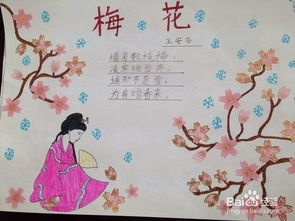 梅花
王安石
墙角数枝梅,
凌寒独自开。
遥知不是雪,
为有暗香来。
Baidu 经验
jingyan.baidu.com